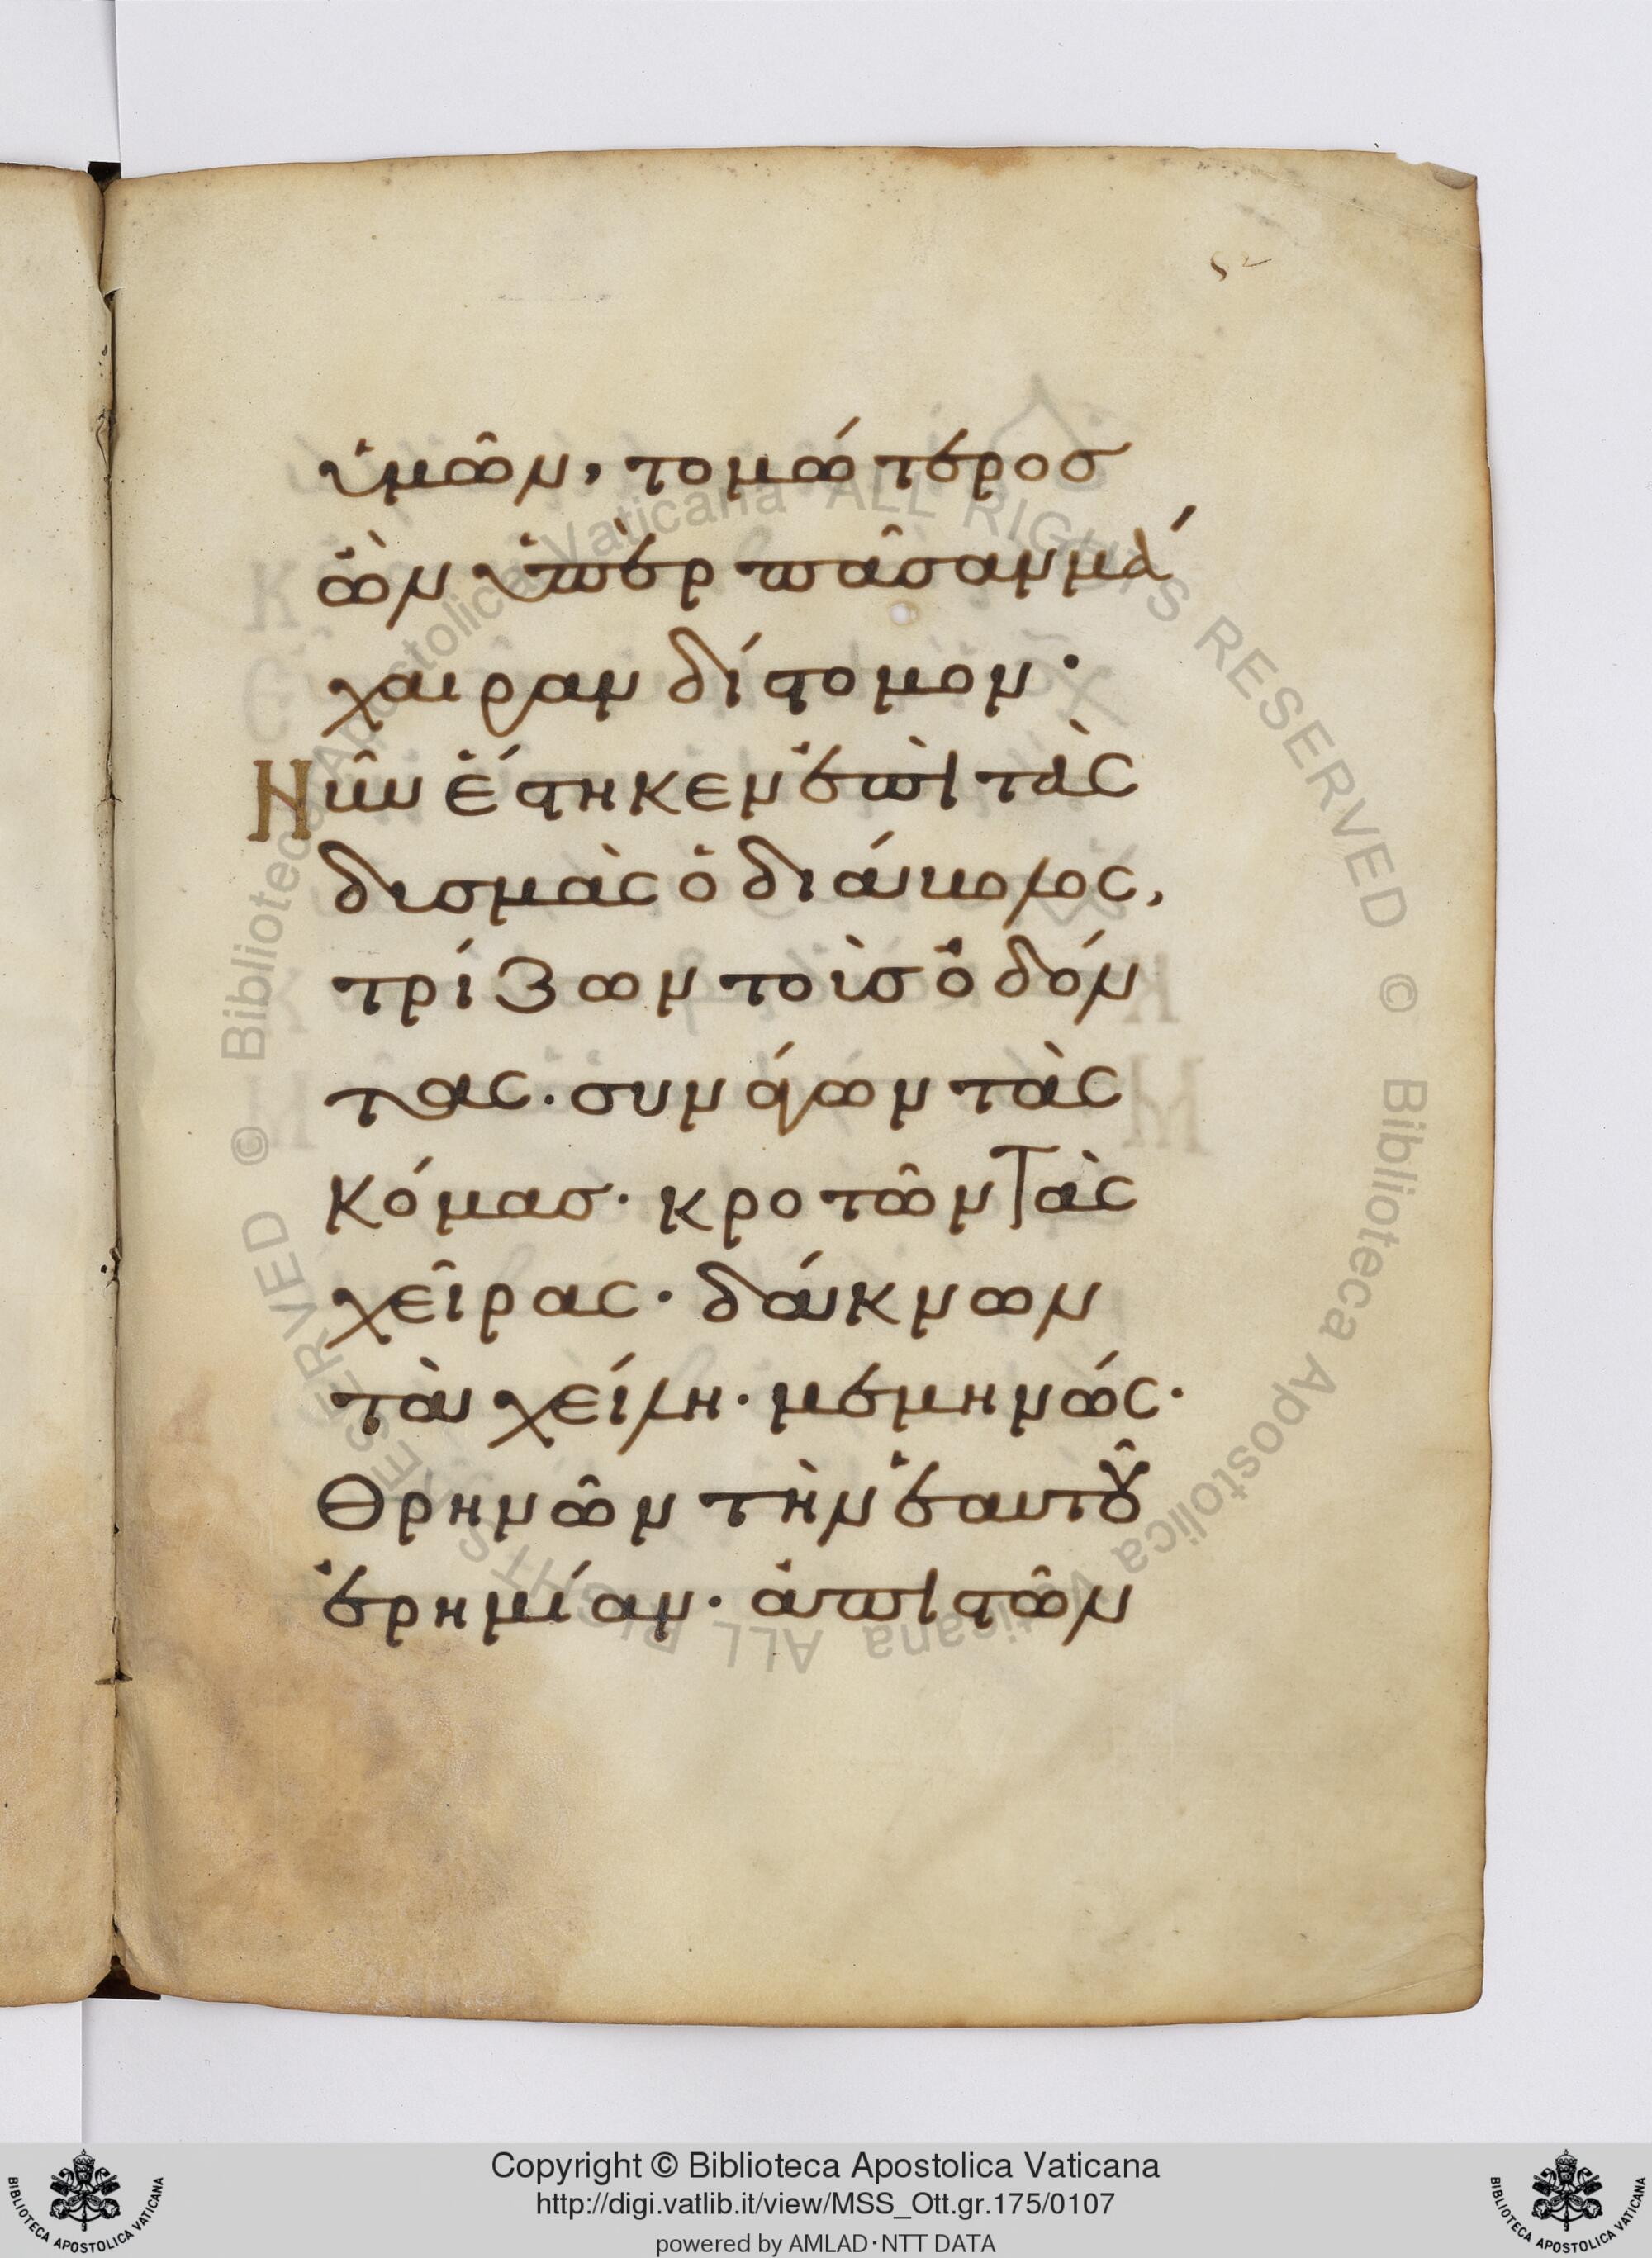 ὑμῶν, τομώτερος
ὢν ὑπὲρ πᾶσαν μά
χαιραν δίστομον·
Νῦν ἕστηκεν ἐπὶ τὰς
δισμὰς ὁ διάκολος,
τρίζων τοὶς ὀδόν
τας. συμσπῶν τὰς
κόμας· κροτῶν τὰς
χεῖρας· δάκνων
τὰ χείλη· μεμηνώς·
θρηνῶν τὴν ἑαυτοῦ
ἐρημίαν· ἀπιστῶν
Copyright © Biblioteca Apostolica Vaticana
http://digi.vatlib.it/view/MSS_Ott.gr.175/0107
powered by AMLAD·NTT DATA
BIBLIOTECA APOSTOLICA VATICANA
BIBLIOTECA APOSTOLICA VATICANA
© Biblioteca Apostolica Vaticana ALL RIGHTS RESERVED
© Biblioteca Apostolica Vaticana ALL RIGHTS RESERVED